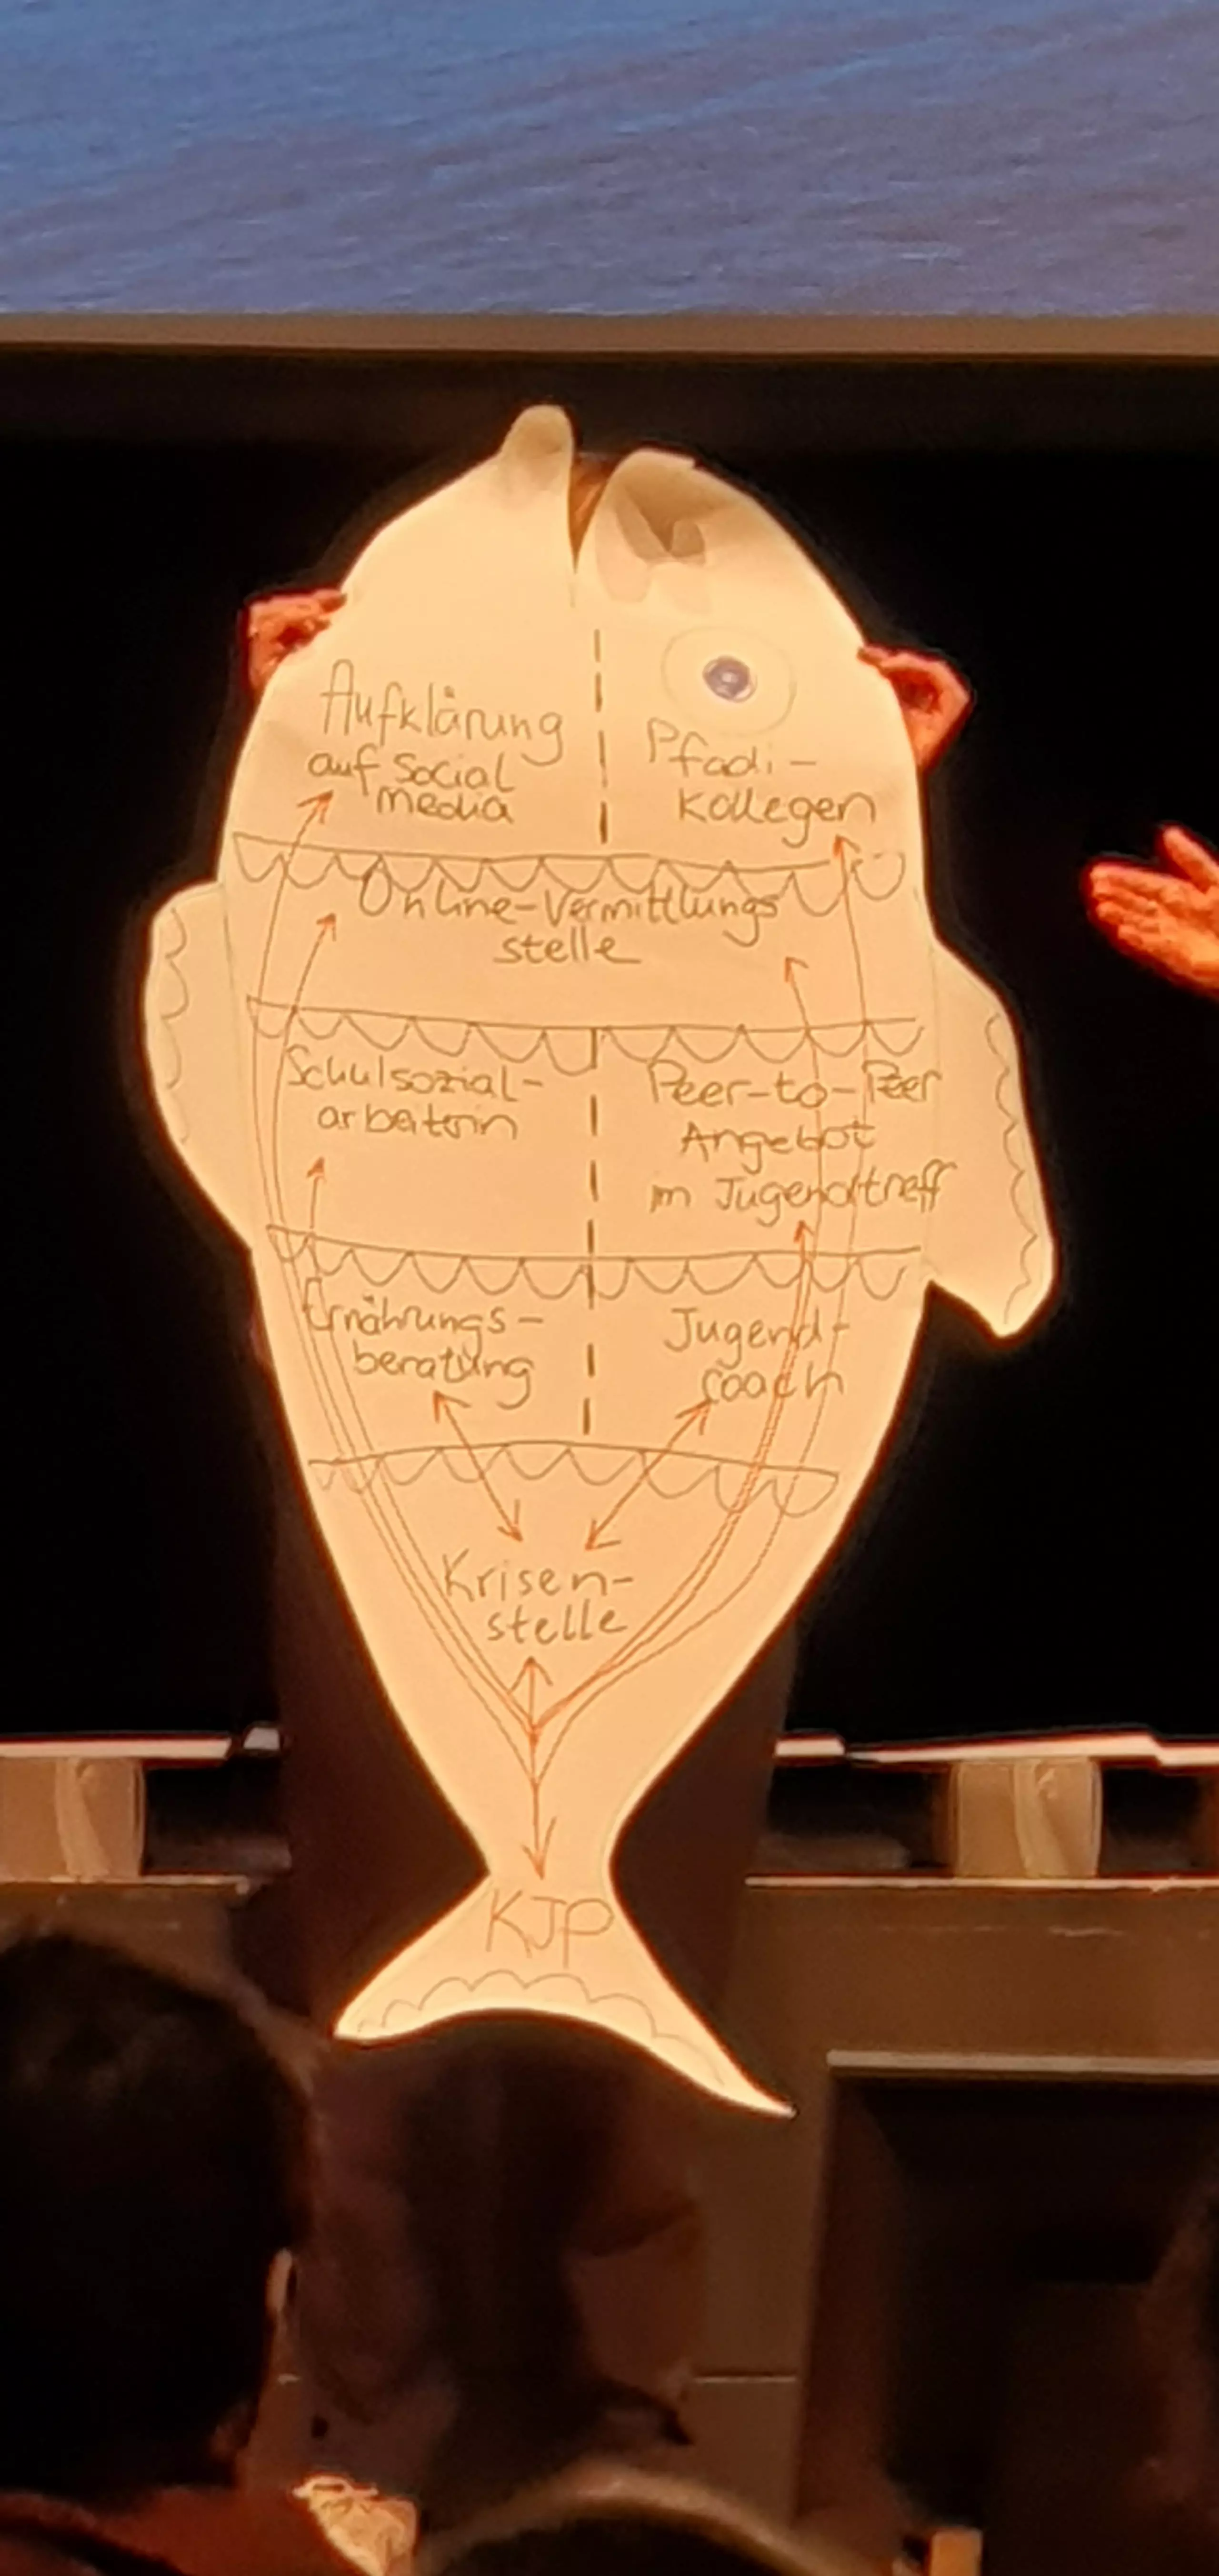 Aufklärung
auf Social
Media
Pfadi-
kollegen
Online-Vermittlungs
stelle
Schulsozial-
arbeiterin
Peer-to-Peer
Angebot
im Jugendtreff
Ernährungs-
beratung
Jugend-
coach
Krisen-
stelle
KJP